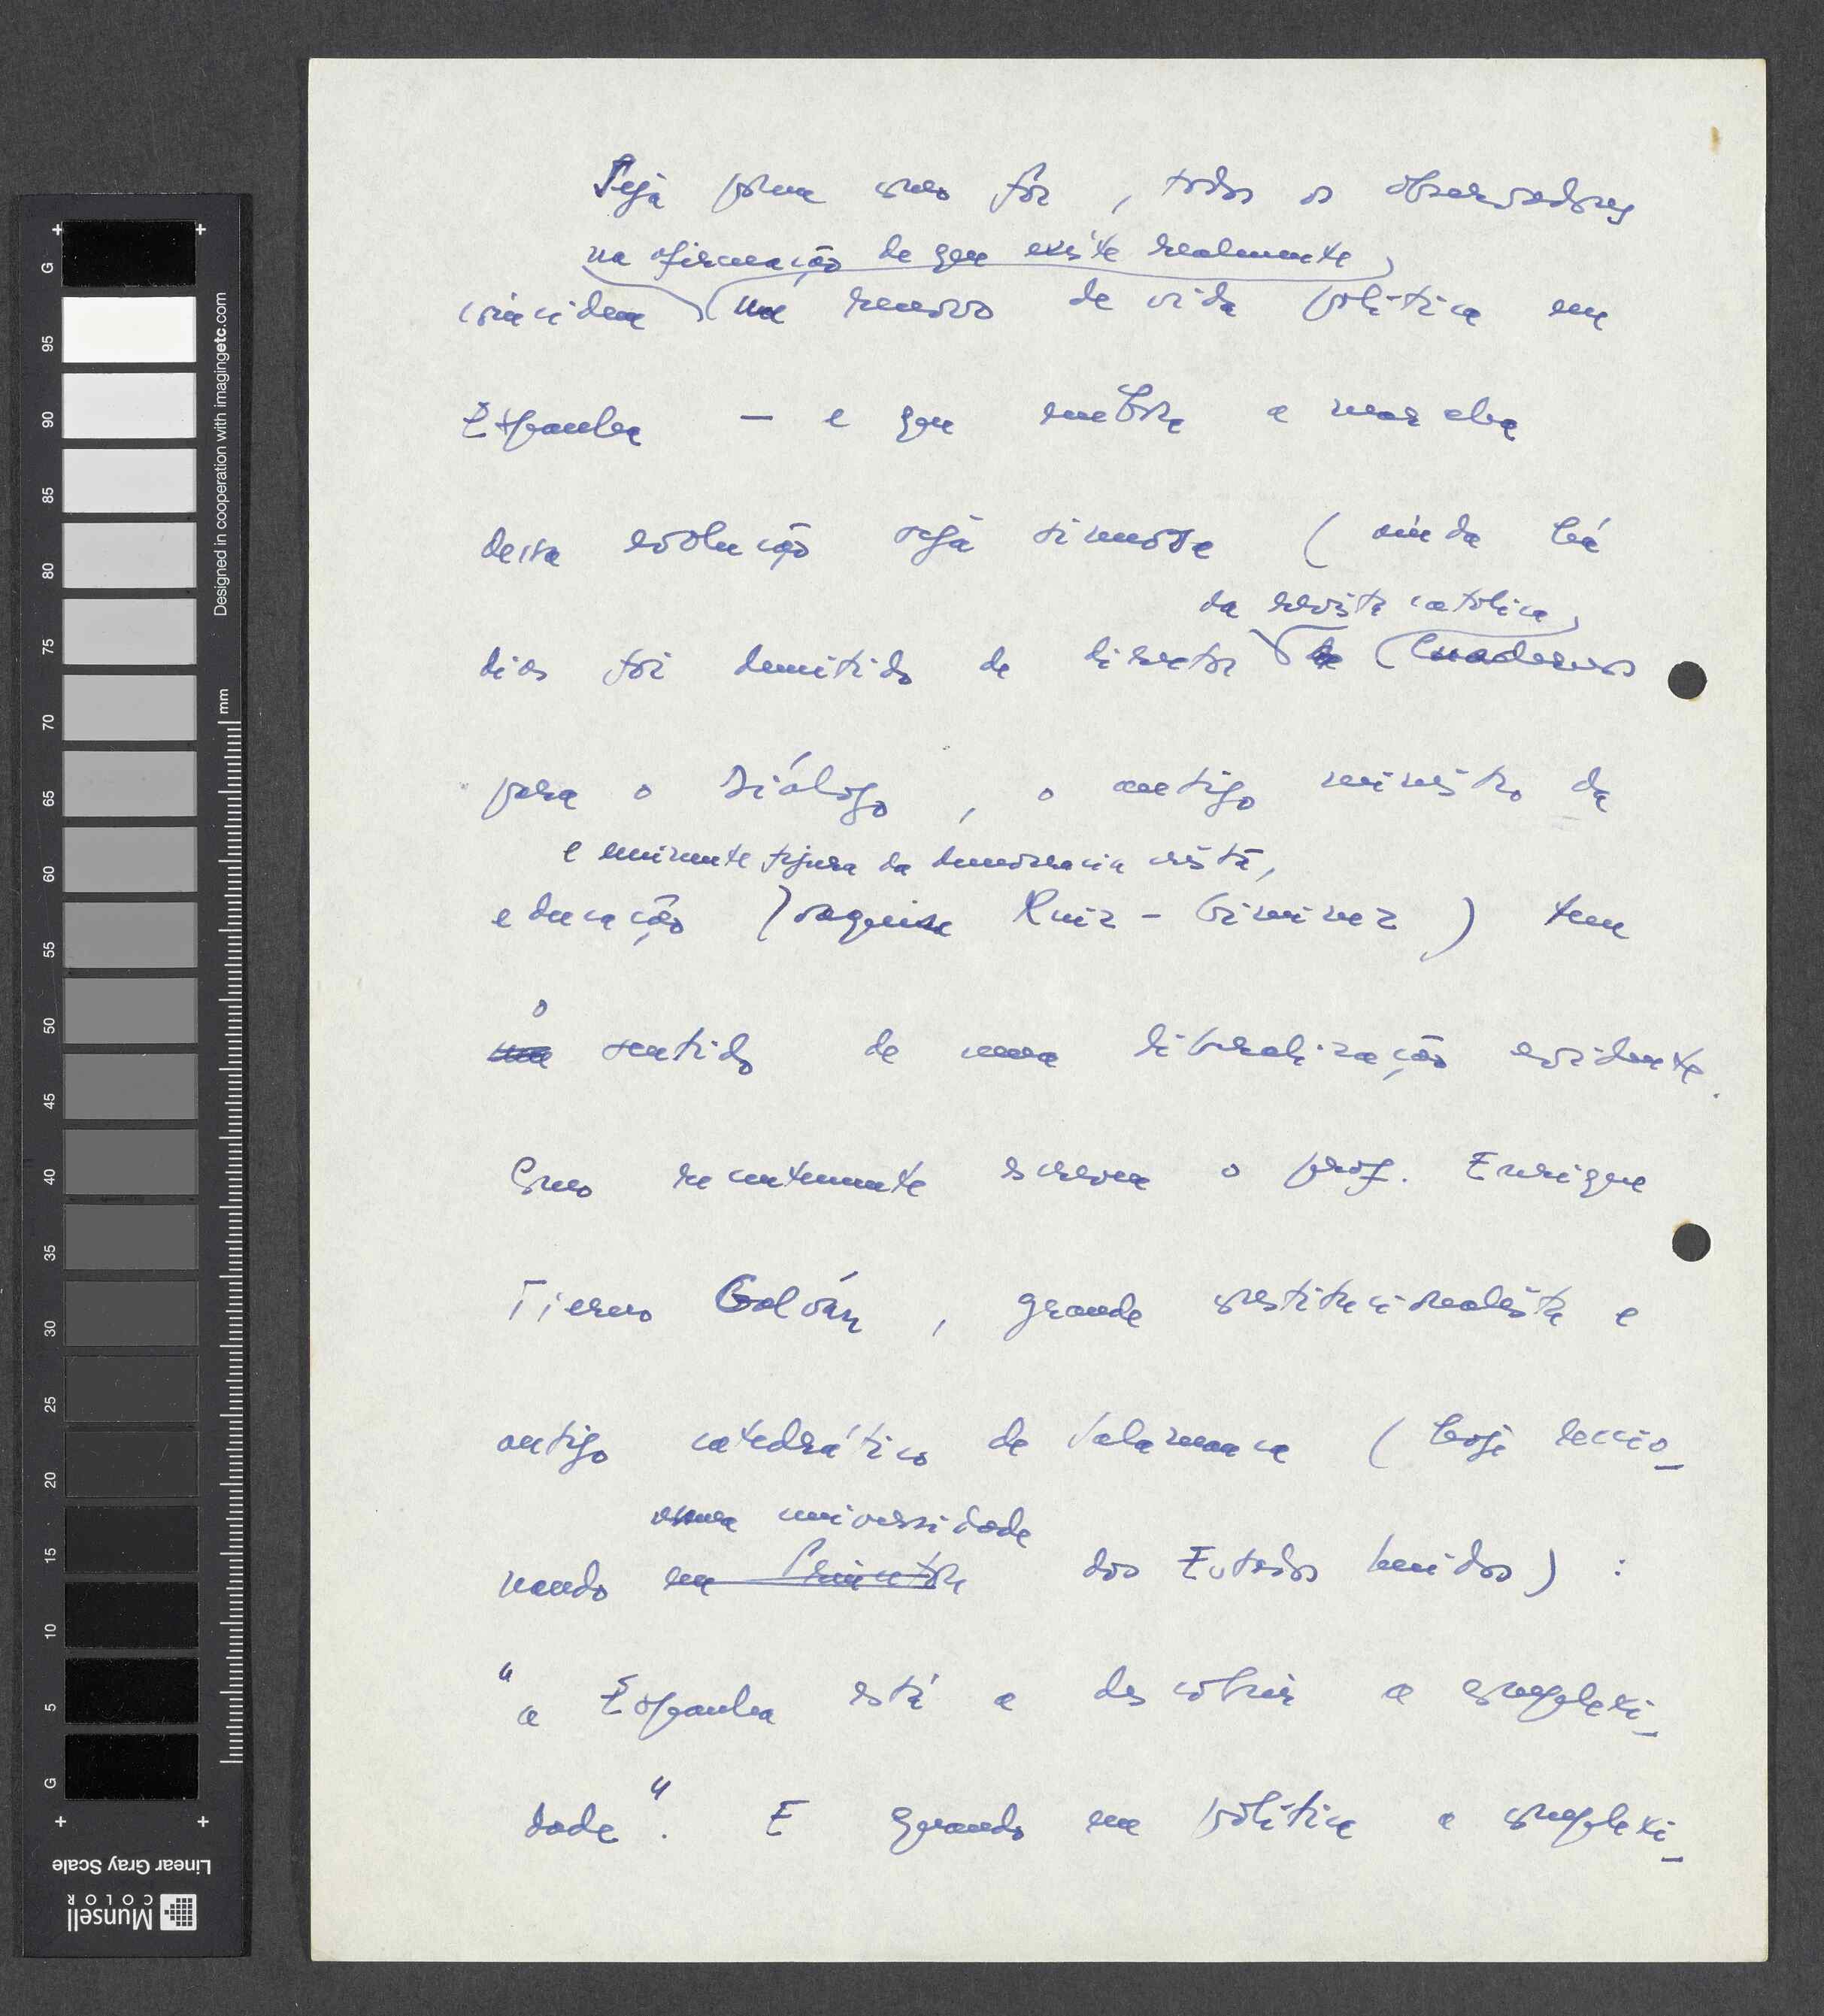 Seja porém como fôr, todos os observadores
na afirmação de que existe realmente
coincidem um renovo de vida política em
Espanha — e que embora a marcha
dessa evolução seja sinuosa (ainda há
da revista católica
dias foi demitido de director de Cuadernos
para o Diálogo, o antigo ministro da
e eminente figura da democracia cristã,
educação Joaquim Ruiz-Giminez) tem
o
um sentido de uma liberalização evidente.
Como recentemente escreveu o prof. Enrique
Tierno Galván, grande constitucionalista e
antigo catedrático de Salamanca (hoje leccio-
numa universidade
nando em Princeton dos Estados Unidos):
"a Espanha está a descobrir a complexi-
dade". E quando em política a complexi-
G
95
90
85
80
75
70
65
60
55
50
45
40
35
30
25
20
15
10
5
G
mm
Designed in cooperation with imagingetc.com
Linear Gray Scale
Munsell
COLOR